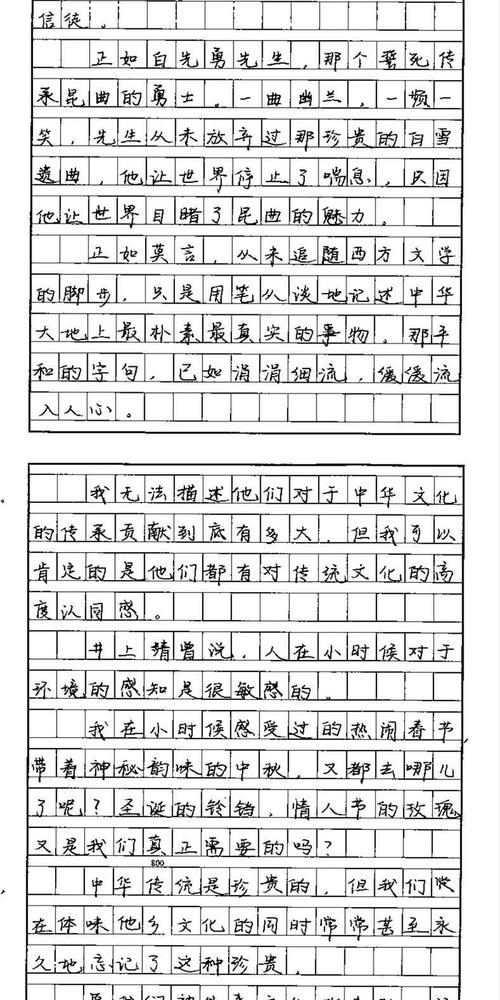 信徒。
正如白先勇先生，那个誓死传
承昆曲的勇士。一曲幽兰，一频一
笑，先生从未放弃过那珍贵的白雪
遗曲，他让世界停止了喘息，只因
他让世界目睹了昆曲的魅力。
正如莫言，从未追随西方文学
的脚步，只是用笔从谈地记述中华
大地上最朴素最真实的事物。那平
和的字句，已如涓涓细流，缓缓流
入人心。
我无法描述他们对于中华文化
的传承贡献到底有多大，但我可以
肯定的是他们都有对传统文化的高
度认同感。
井上靖曾说，人在小时候对于
环境的感知是很敏感的。
我在小时候感受过的热闹春节，
带着神秘韵味的中秋，又都去哪儿
了呢？圣诞的铃铛，情人节的玫瑰
又是我们真正需要的吗？
800
中华传统是珍贵的，但我们
在体味他乡文化的同时常常甚至永
久地忘记了这种珍贵。